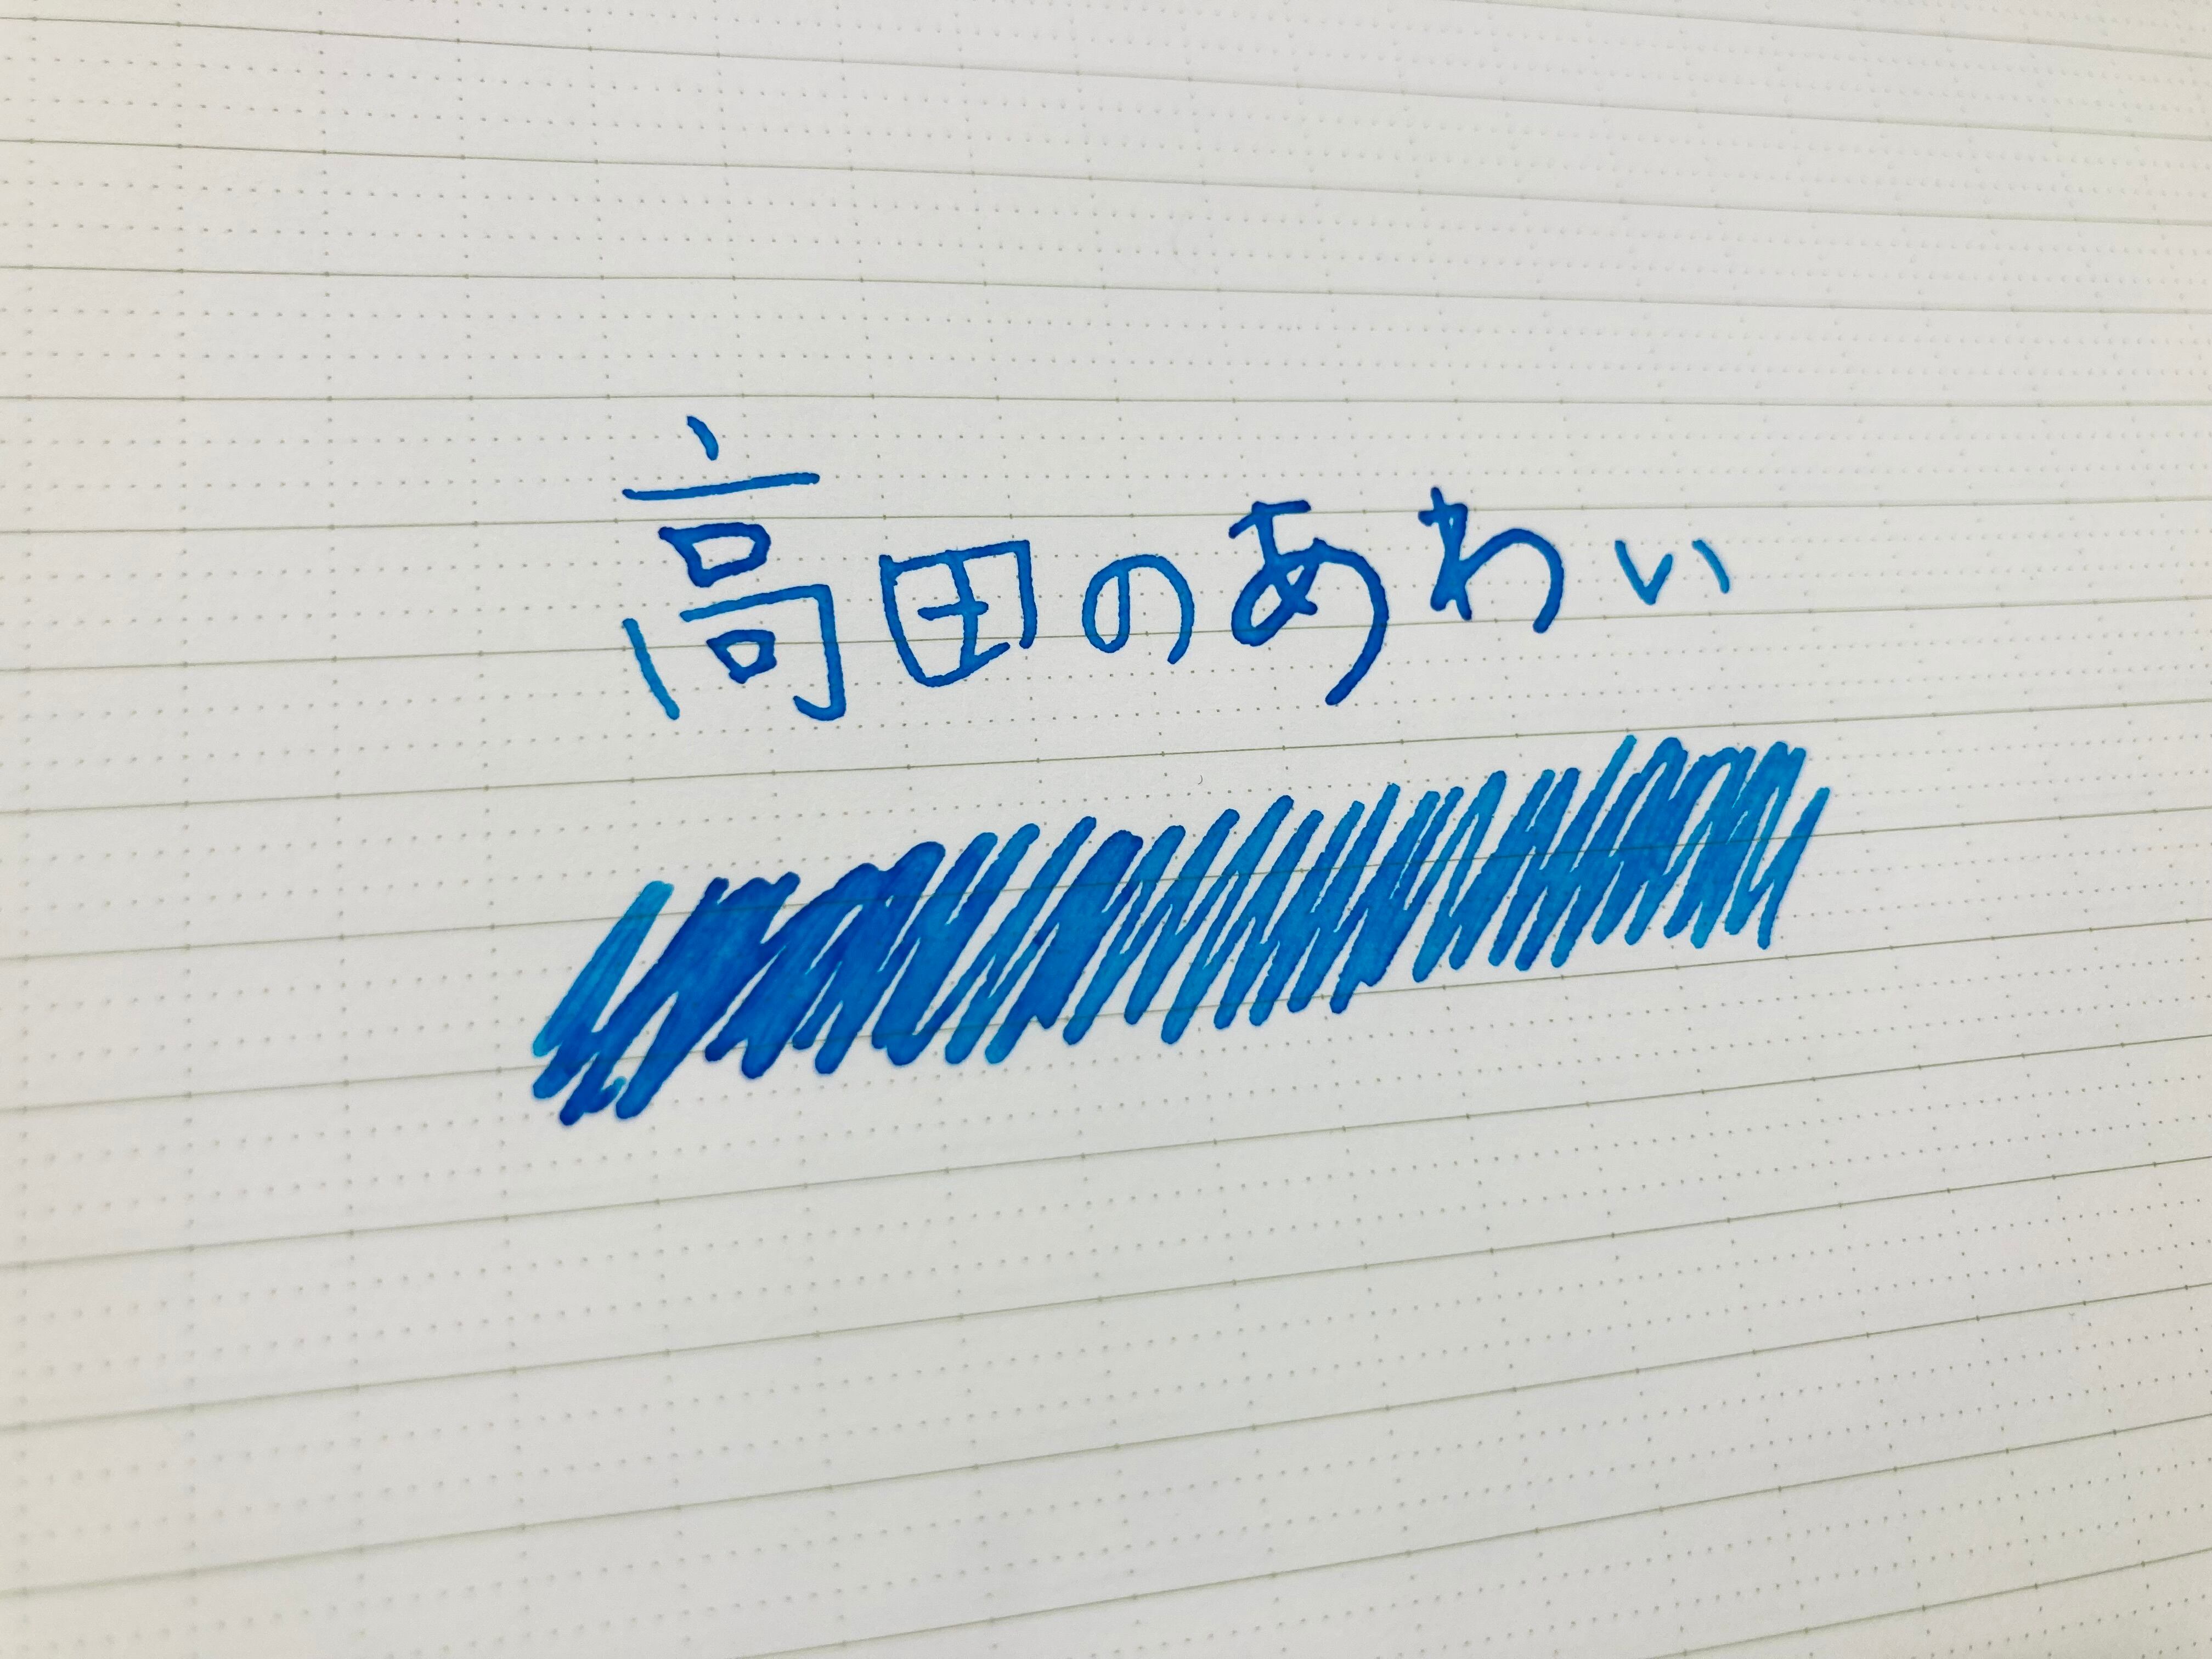 高田のあわい